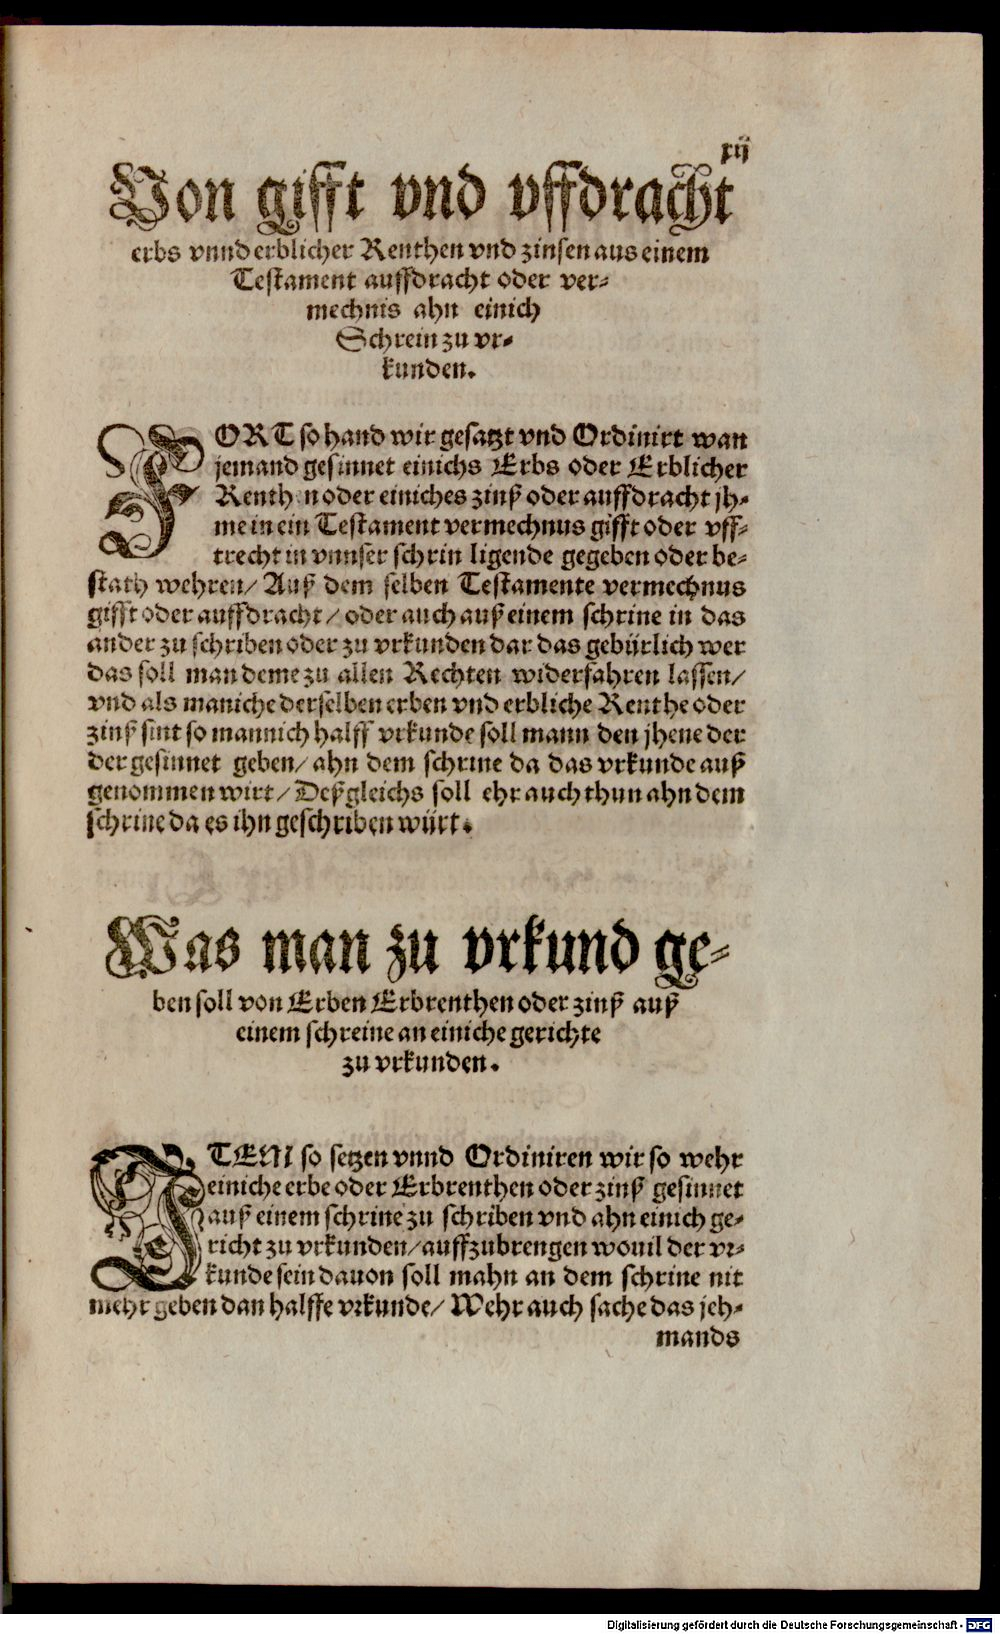 xij
Von gifft vnd vffdracht
erbs vnnd erblicher Renthen vnd zinsen aus einem
Testament auffdracht oder ver-
mechnis ahn einich
Schrein zu vr-
kunden.
FORT so hand wir gesatzt vnd Ordinirt wan
jemand gesinnet einichs Erbs oder Erblicher
Renthen oder einiches zinß oder auffdracht jh-
me in ein Testament vermechnus gifft oder vff-
trecht in vnnser schrin ligende gegeben oder be-
stath wehren/ Auß dem selben Testamente vermechnus
gifft oder auffdracht/ oder auch auß einem schrine in das
ander zu schriben oder zu vrkunden dar das gebürlich wer
das soll man deme zu allen Rechten widerfahren lassen/
vnd als maniche derselben erben vnd erbliche Renthe oder
zinß sint so mannich halff vrkunde soll mann den jhene der
der gesinnet geben/ ahn dem schrine da das vrkunde auß
genommen wirt/ Deßgleichs soll ehr auch thun ahn dem
schrine da es ihn geschriben würt.
Was man zu vrkund ge-
ben soll von Erben Erbrenthen oder zinß auß
einem schreine an einiche gerichte
zu vrkunden.
ITEM so setzen vnnd Ordiniren wir so wehr
einiche erbe oder Erbrenthen oder zinß gesinnet
auß einem schrine zu schriben vnd ahn einich ge-
richt zu vrkunden/ auffzubrengen wouil der vr-
kunde sein dauon soll mahn an dem schrine nit
mehr geben dan halffe vrkunde/ Wehr auch sache das jeh-
mands
Digitalisierung gefördert durch die Deutsche Forschungsgemeinschaft - DFG